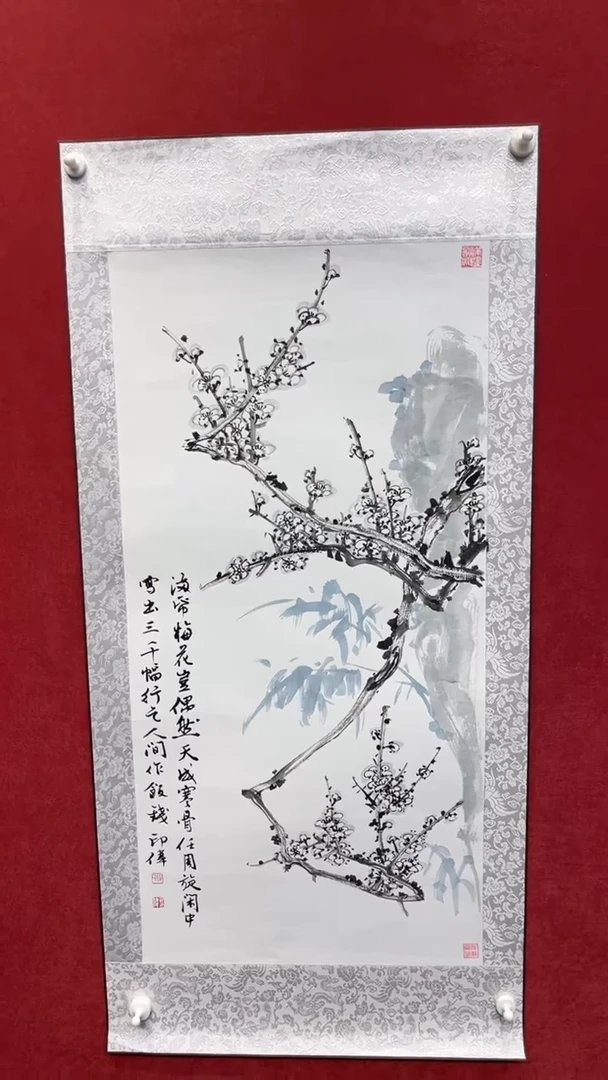 梅花豈偶然天成寒骨任周旋闲中
写出三千幅行乞人间作飯錢 印偉